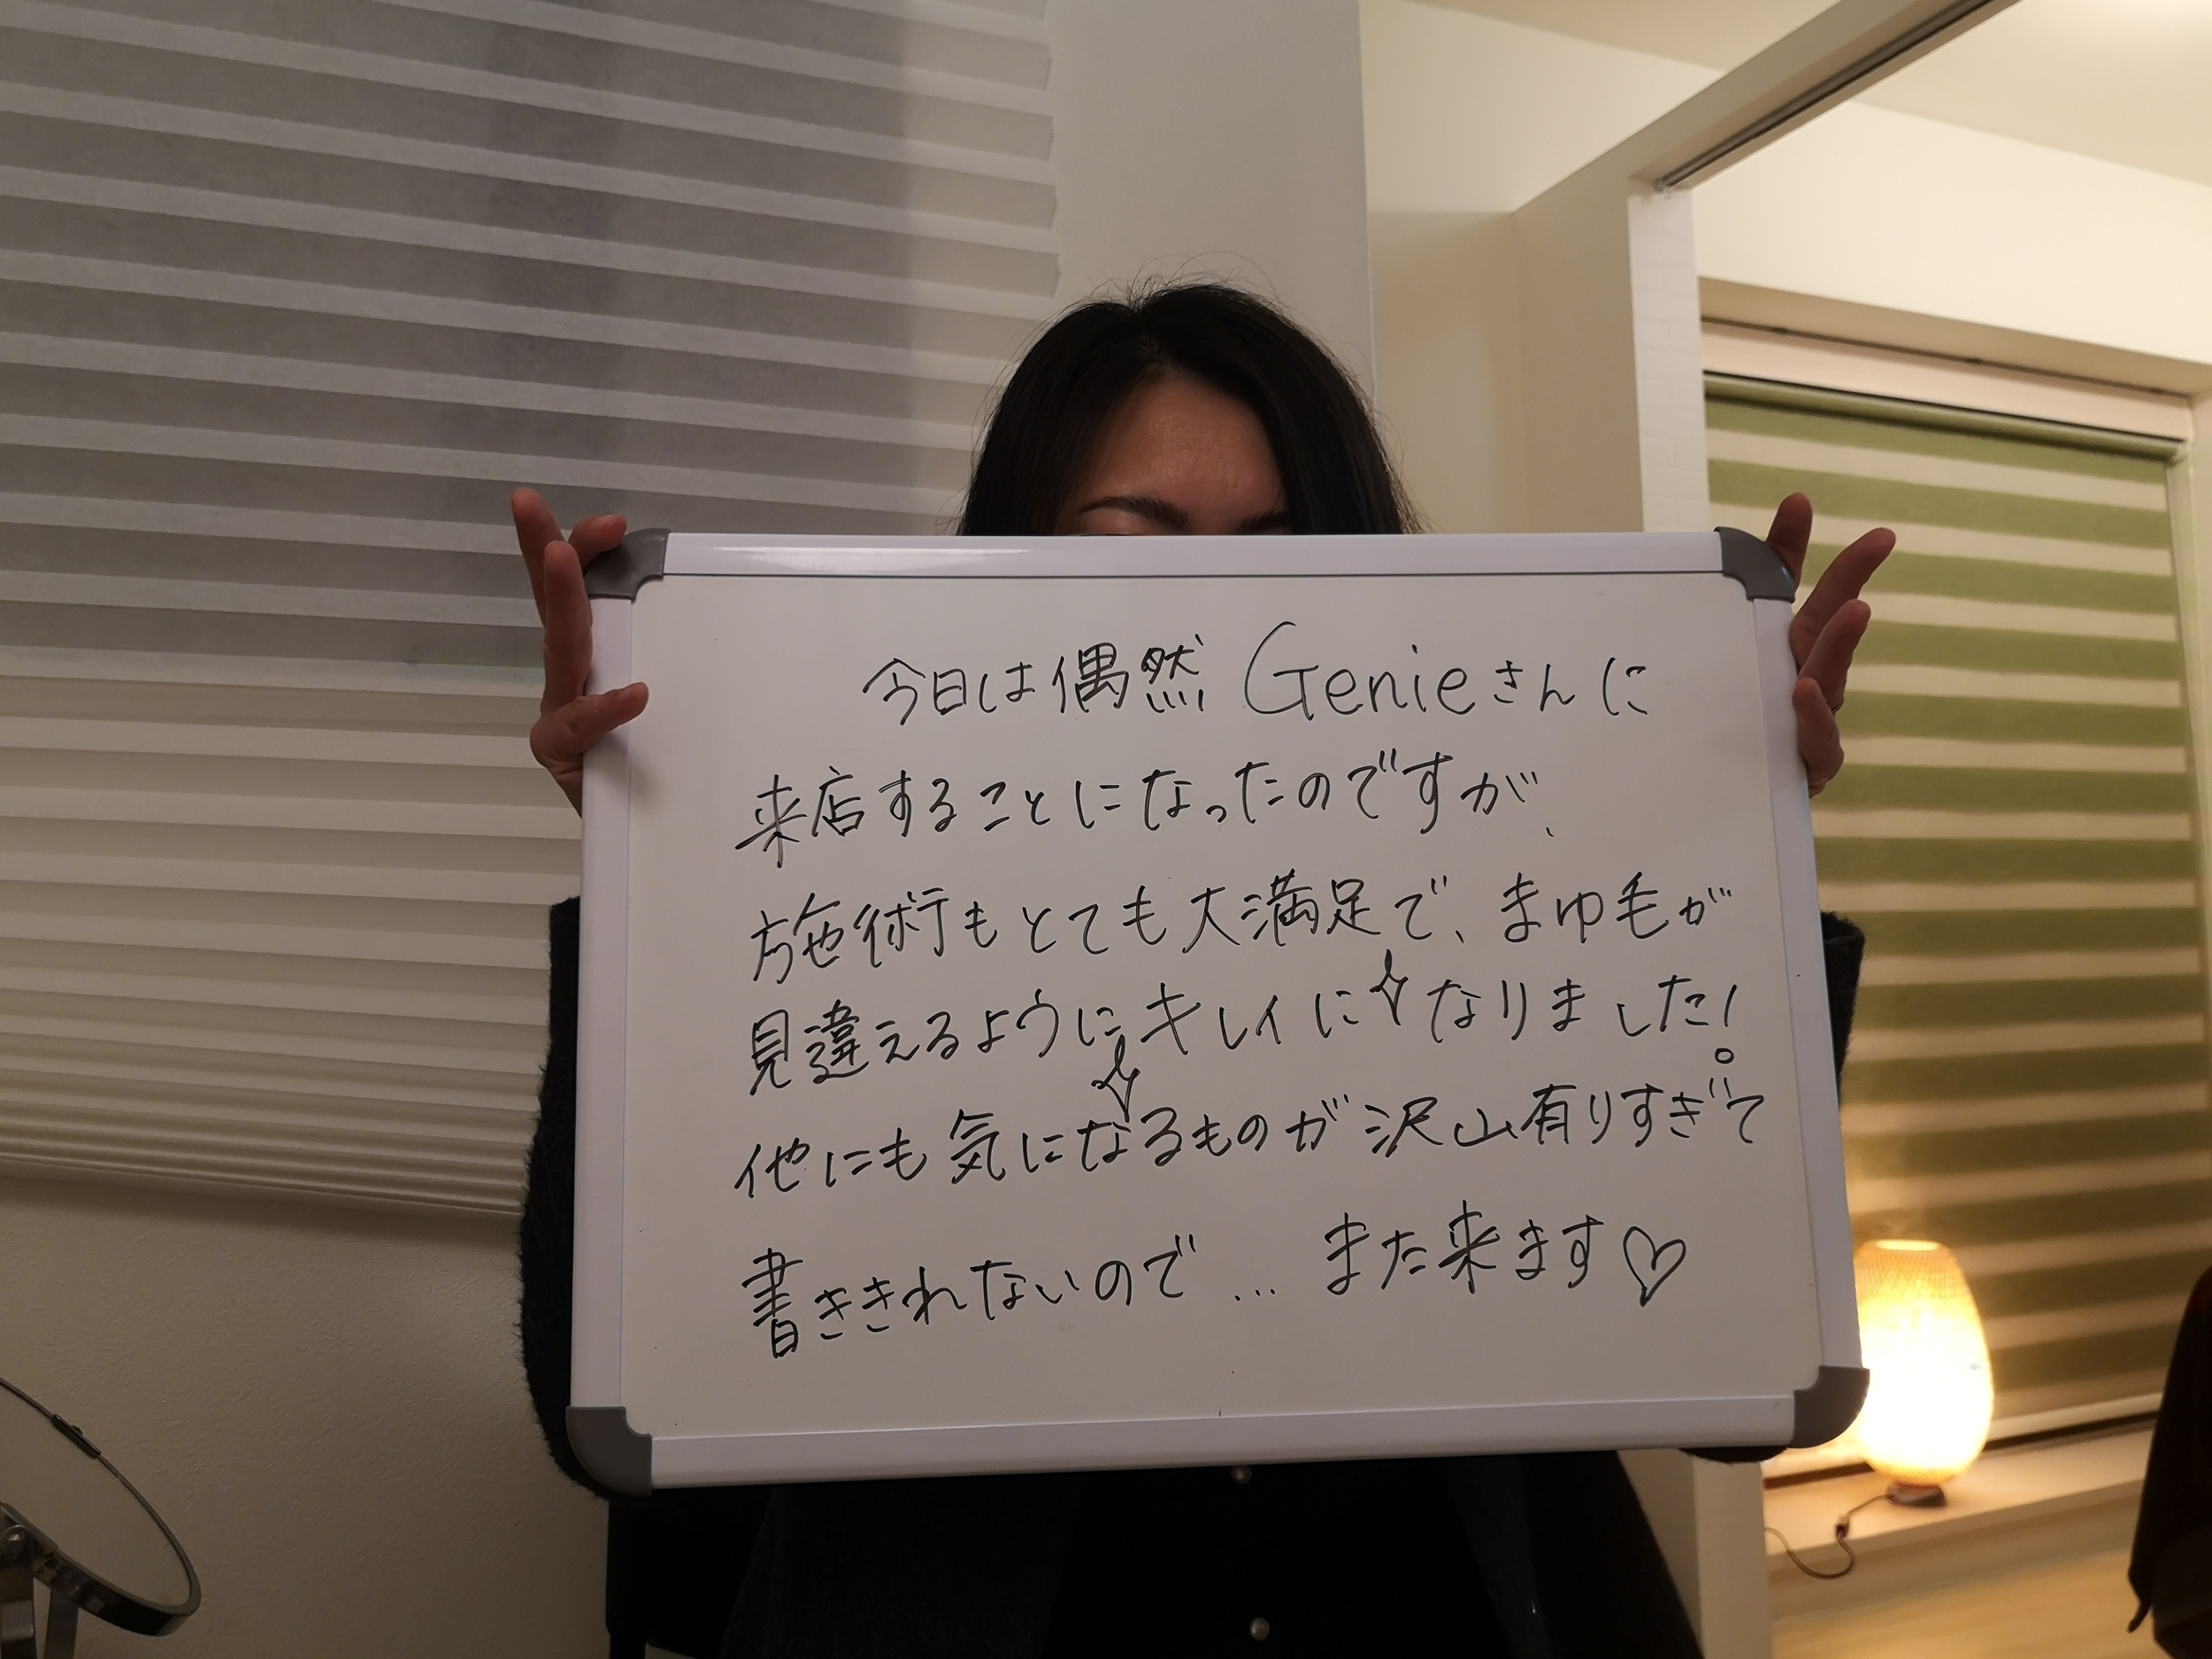 今日は偶然Genieさんに
来店することになったのですが、
施術もとても大満足で、まゆ毛が
見違えるようにキレイになりました!
他にも気になるものが沢山有りすぎて
書ききれないので…また来ます♡